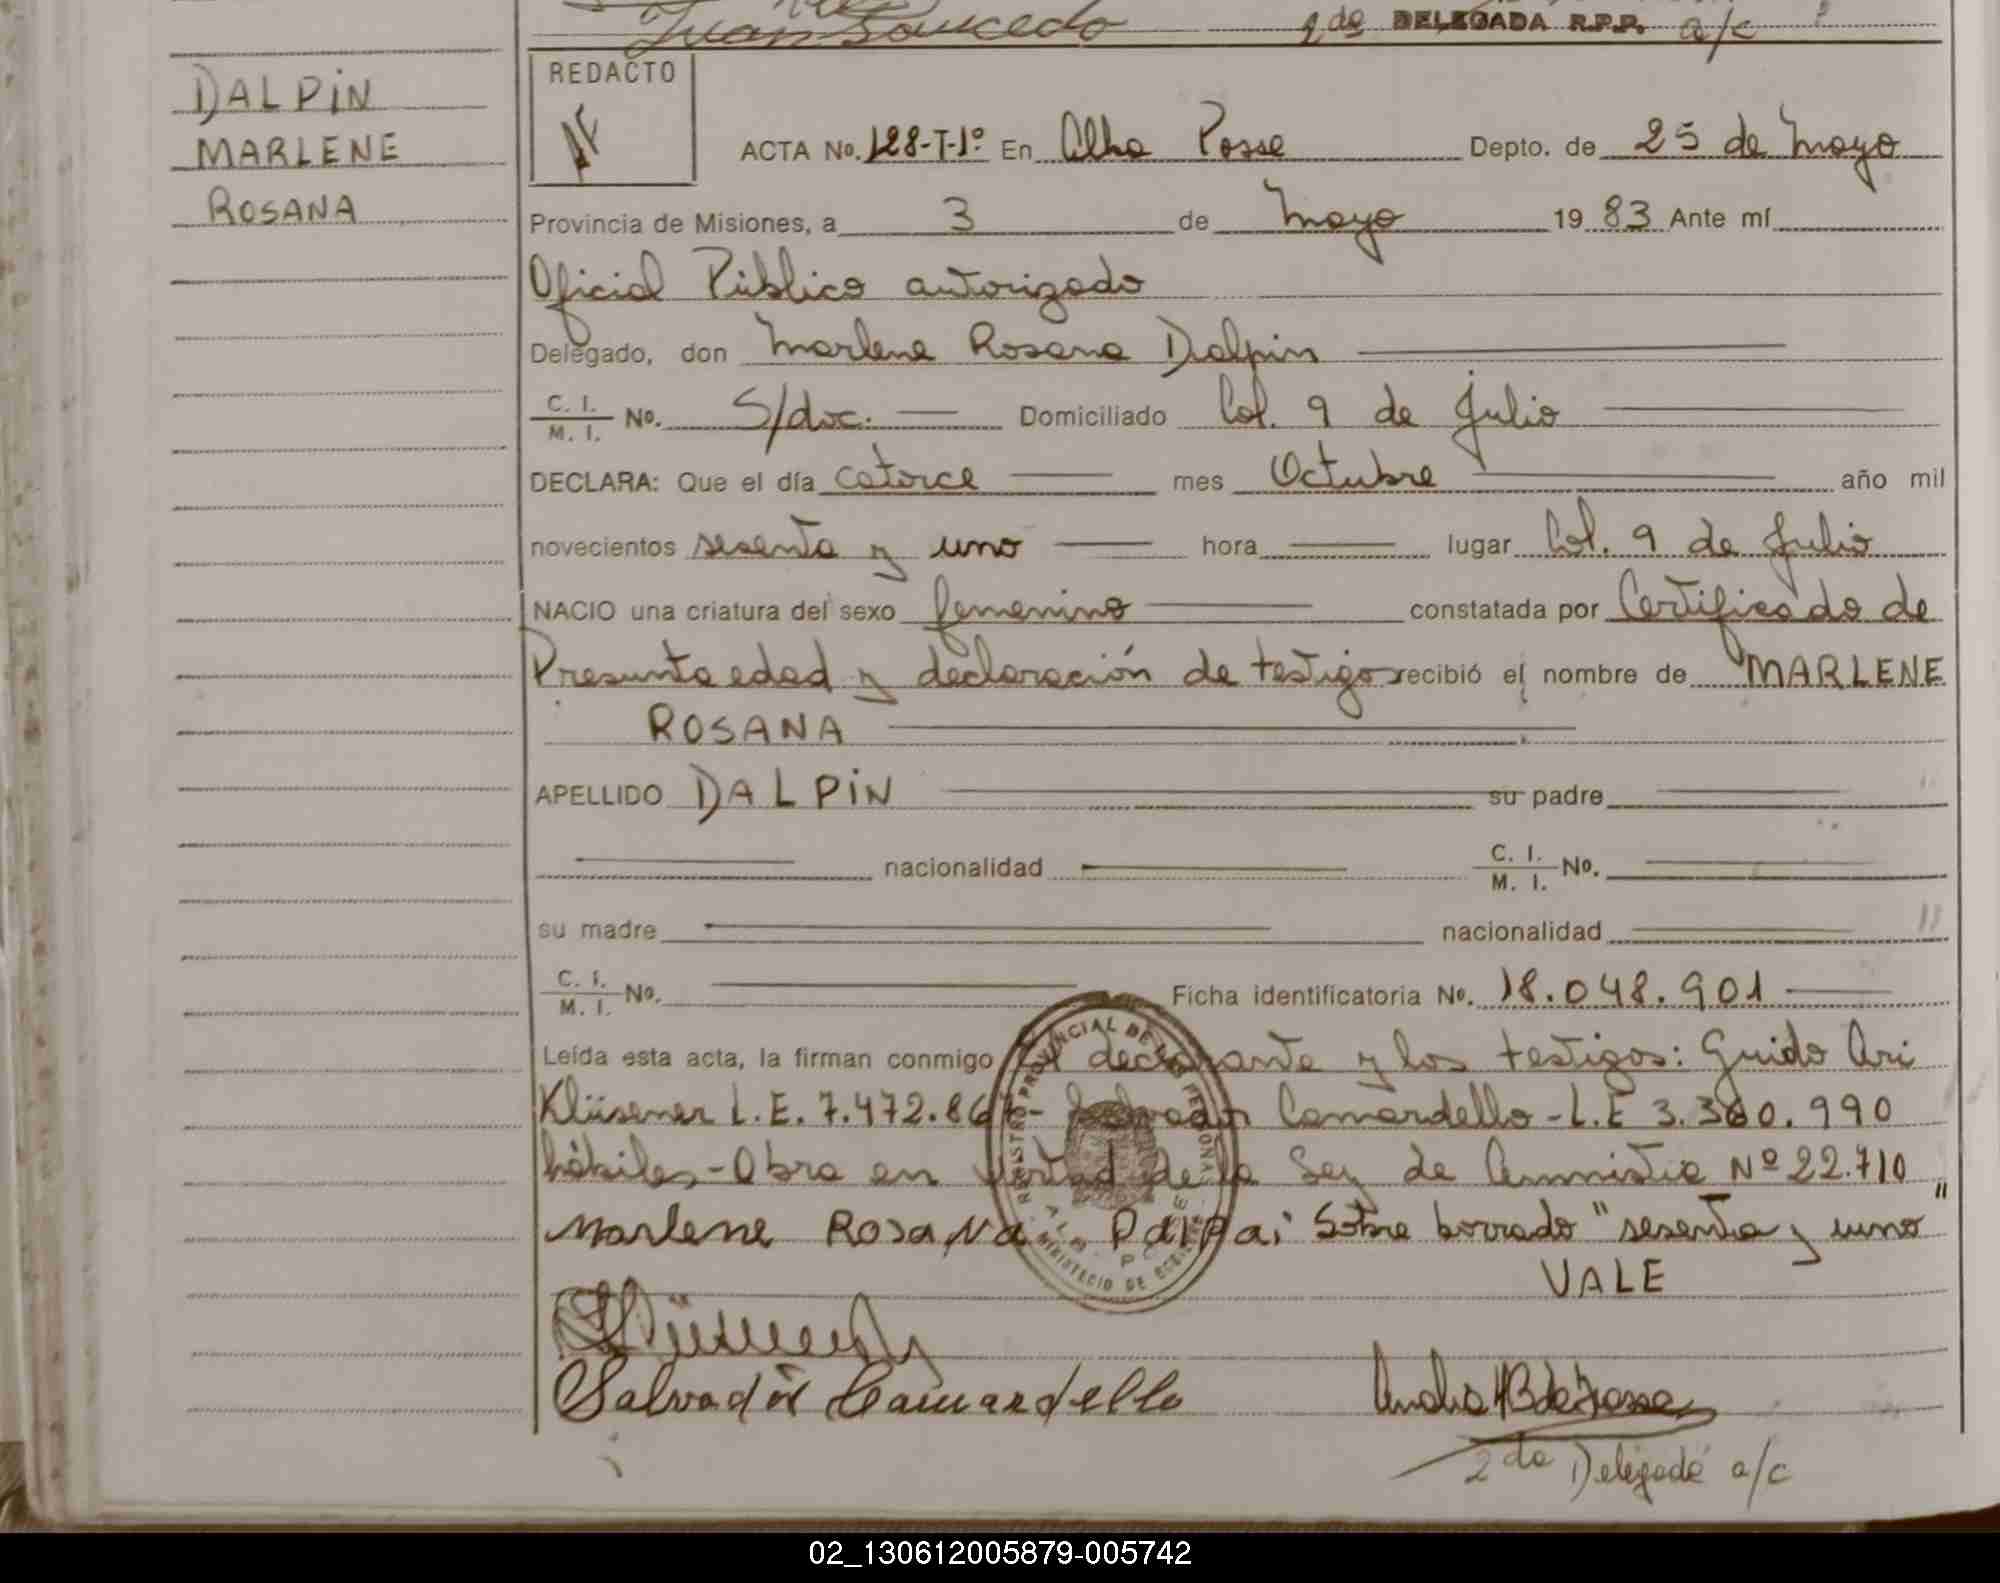 Juan Saucedo 2da DELEGADA R.P.P. a/c
DALPIN
MARLENE
ROSANA
REDACTO
ACTA No. 128-T-1º En Alba Posse Depto. de 25 de Mayo
Provincia de Misiones, a 3 de Mayo 1983 Ante mí
Oficial Público autorizado
Delegado, don Marlene Rosana Dalpin
C. I. / M. I. No. S/doc. Domiciliado Col. 9 de Julio
DECLARA: Que el día catorce mes Octubre año mil
novecientos sesenta y uno hora lugar Col. 9 de Julio
NACIO una criatura del sexo femenino constatada por Certificado de
Presunta edad y declaración de testigos recibió el nombre de MARLENE
ROSANA
APELLIDO DALPIN su padre
nacionalidad C. I. / M. I. No.
su madre nacionalidad
C. I. / M. I. No. Ficha identificatoria No. 18.048.901
Leída esta acta, la firman conmigo el declarante y los testigos: Guido Ari
Klüsener L.E. 7.472.86 - Salvador Camardello - L.E 3.360.990
hábiles - Obra en virtud de la Ley de Amnistia Nº 22.710
Marlene Rosana Dalpai Sobre borrado "sesenta y uno"
VALE
Salvador Camardello
2da Delegada a/c
02_130612005879-005742